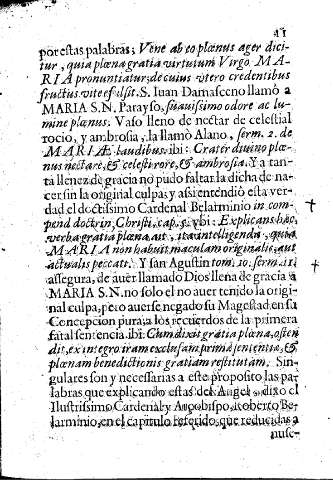 41
por estas palabras; Vene ab eo plœnus ager dici-
tur, quia plœna gratia virtutum Virgo MA-
RIA pronuntiatur; de cuius vtero credentibus
fructus vitæ effulsit. S. Iuan Damasceno llamò a
MARIA S.N. Parayso, suauissimo odore ac lu-
mine plœnus. Vaso lleno de nectar de celestial
rocio, y ambrosia, la llamò Alano, serm. 2. de
MARIÆ laudibus ibi: Crater diuino plœ-
nus nectare, & celesti rore, & ambrosia. Y a tan-
ta llenez de gracia no pudo faltar la dicha de na-
cer sin la original culpa; y assi entendiò esta ver-
dad el doctissimo Cardenal Belarminio in com-
pend doctrin. Christi, cap. 5. vbi: Explicans hæc
verba gratia plœna, aut, ita intelligendu, quia
MARIA non habuit maculam originalis, aut
actualis peccati. Y san Agustin tom. 10. serm. 11.
assegura, de auer llamado Dios llena de gracia a
MARIA S.N. no solo el no auer tenido la origi-
nal culpa, pero auerse negado su Magestad en su
Concepcion pura a los recuerdos de la primera
fatal sentencia. Ibi: Cum dixit gratia plœna, osten
dit, ex integro iram exclusam primæ sententiæ, &
plœnam benedictionis gratiam restitutam. Sin-
gulares son y necessarias a este proposito las pa-
labras que explicando estas del Angel, dixo el
Ilustrissimo Cardenal y Arçobispo Roberto Be-
larminio, en el capitulo referido, que reducidas a
nues-